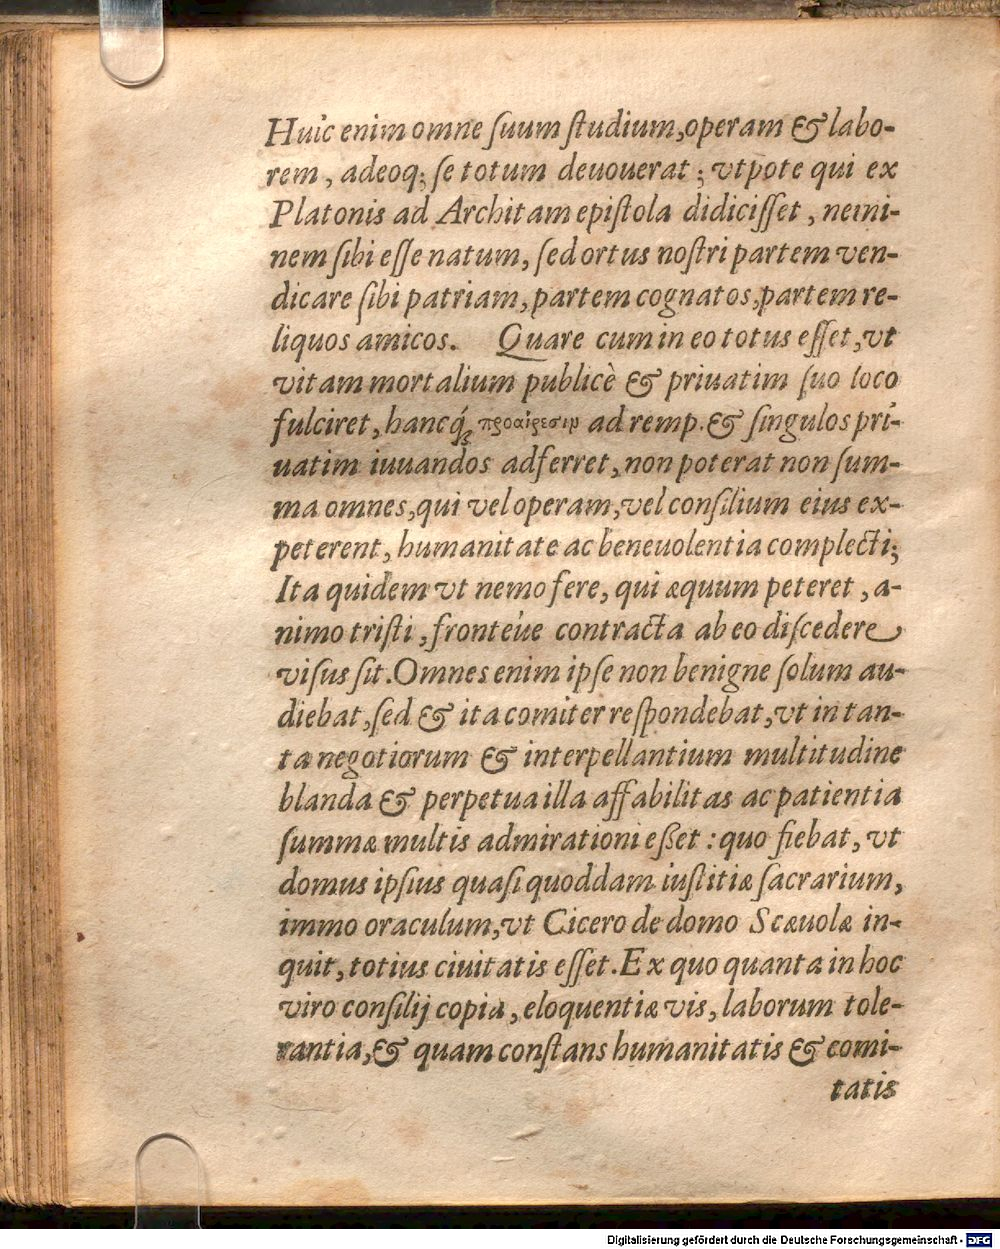 Huic enim omne ſuum ſtudium, operam & labo-
rem, adeoq; ſe totum deuouerat; vtpote qui ex
Platonis ad Architam epiſtola didiciſſet, nemi-
nem ſibi eſſe natum, ſed ortus noſtri partem ven-
dicare ſibi patriam, partem cognatos, partem re-
liquos amicos. Quare cum in eo totus eſſet, vt
vitam mortalium publicè & priuatim ſuo loco
fulciret, hancq́; προαίρεσιν ad remp. & ſingulos pri-
uatim iuuandos adferret, non poterat non ſum-
ma omnes, qui vel operam, vel conſilium eius ex-
peterent, humanitate ac beneuolentia complecti;
Ita quidem vt nemo fere, qui æquum peteret, a-
nimo triſti, fronteúe contracta ab eo diſcedere
viſus ſit. Omnes enim ipſe non benigne ſolum au-
diebat, ſed & ita comiter reſpondebat, vt in tan-
ta negotiorum & interpellantium multitudine
blanda & perpetua illa affabilitas ac patientia
ſummæ multis admirationi eßet: quo fiebat, vt
domus ipſius quaſi quoddam iuſtitiæ ſacrarium,
immo oraculum, vt Cicero de domo Scæuolæ in-
quit, totius ciuitatis eſſet. Ex quo quanta in hoc
viro conſilij copia, eloquentiæ vis, laborum tole-
rantia, & quam conſtans humanitatis & comi-
tatis
Digitalisierung gefördert durch die Deutsche Forschungsgemeinschaft - DFG